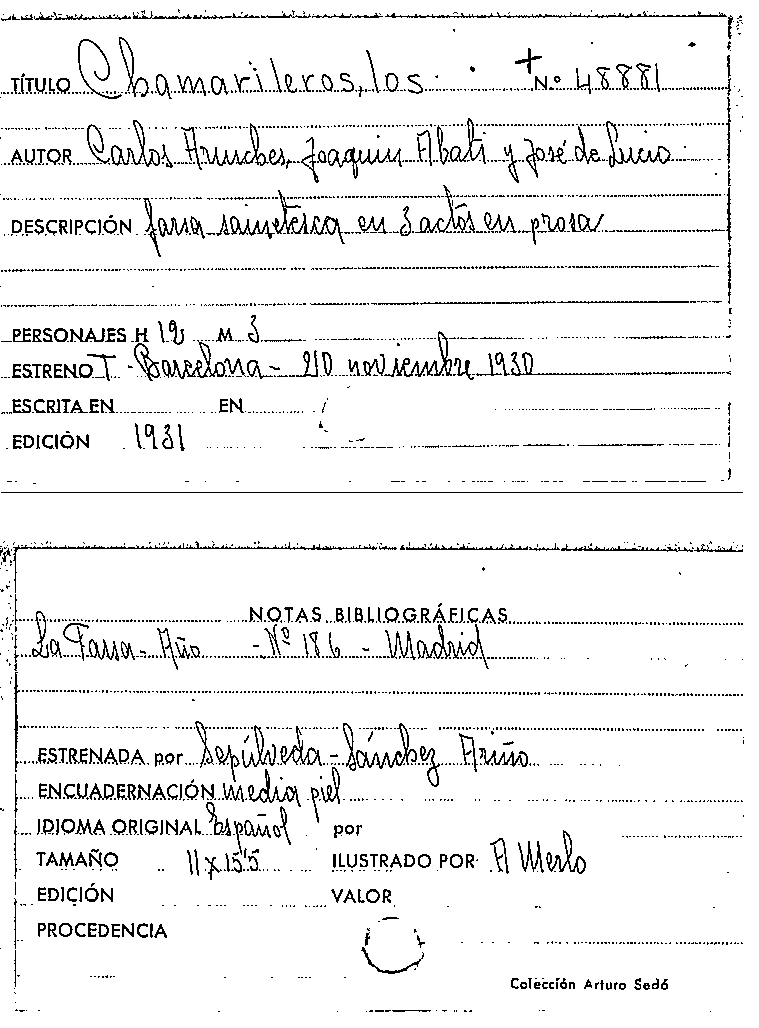 TÍTULO Chamarileros, los. + N.º 48881
AUTOR Carlos Arniches, Joaquin Abati y José de Lucio
DESCRIPCIÓN farsa sainetesca en 3 actos en prosa
PERSONAJES H 12 M 3
ESTRENO T - Barcelona - noviembre 1930
ESCRITA EN EN
EDICIÓN 1931
NOTAS BIBLIOGRÁFICAS
La Farsa - Año - Nº 186 - Madrid
ESTRENADA por Sepúlveda - Sánchez Ariño
ENCUADERNACIÓN media piel
IDIOMA ORIGINAL Español por
TAMAÑO 11 x 15'5 ILUSTRADO POR A Merlo
EDICIÓN VALOR
PROCEDENCIA
Colección Arturo Sedó